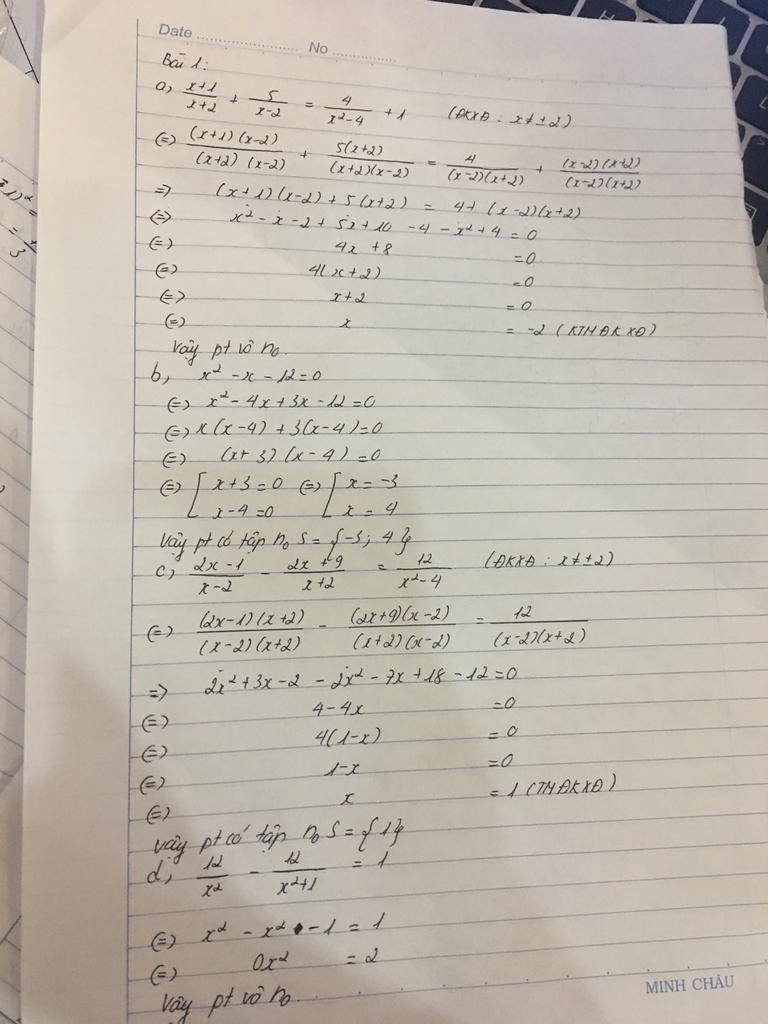 Date .................. No ............
Bài 1:
a, (x+1)/(x+2) + 5/(x-2) = 4/(x²-4) + 1 (ĐKXĐ: x≠±2)
(=) (x+1)(x-2)/(x+2)(x-2) + 5(x+2)/(x+2)(x-2) = 4/(x-2)(x+2) + (x-2)(x+2)/(x-2)(x+2)
=> (x+1)(x-2) + 5(x+2) = 4+ (x-2)(x+2)
(=) x² - x - 2 + 5x + 10 - 4 - x² + 4 = 0
(=) 4x + 8 = 0
(=) 4(x+2) = 0
(=) x+2 = 0
(=) x = -2 (KTMĐKXĐ)
Vậy pt vô n₀.
b, x² - x - 12 = 0
(=) x² - 4x + 3x - 12 = 0
(=) x(x-4) + 3(x-4) = 0
(=) (x+3)(x-4) = 0
(=) [ x+3 = 0 (=) [ x = -3
x-4 = 0 x = 4
Vậy pt có tập n₀ S = {-3; 4}
c, (2x-1)/(x-2) - (2x+9)/(x+2) = 12/(x²-4) (ĐKXĐ: x≠±2)
(=) (2x-1)(x+2)/(x-2)(x+2) - (2x+9)(x-2)/(x+2)(x-2) = 12/(x-2)(x+2)
=> 2x² + 3x - 2 - 2x² - 7x + 18 - 12 = 0
(=) 4 - 4x = 0
(=) 4(1-x) = 0
(=) 1-x = 0
(=) x = 1 (TMĐKXĐ)
Vậy pt có tập n₀ S = {1}
d, 12/x² - 12/(x²+1) = 1
(=) x² - x² - 1 = 1
(=) 0x² = 2
Vậy pt vô n₀.
MINH CHÂU